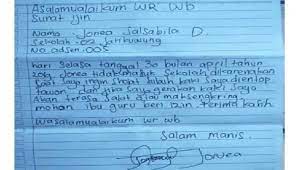 Asalamualaikum WR Wb
Surat ijin
Nama : Jonea Salsabila D.
Sekolah : 02 
No. adsen : 005
hari selasa tanggal 30 bulan april tahun
2019 Jonea tidak masuk sekolah disaranakan
saya ingin shobat lailah kaki saya dientop
tawon dan jika saya gerakan kaki saya
akan terasa sakit atau maksengkring
mohon ibu guru beri izin terima kasih
Wasalamualaikum wr wb
Salam manis.
Jonea